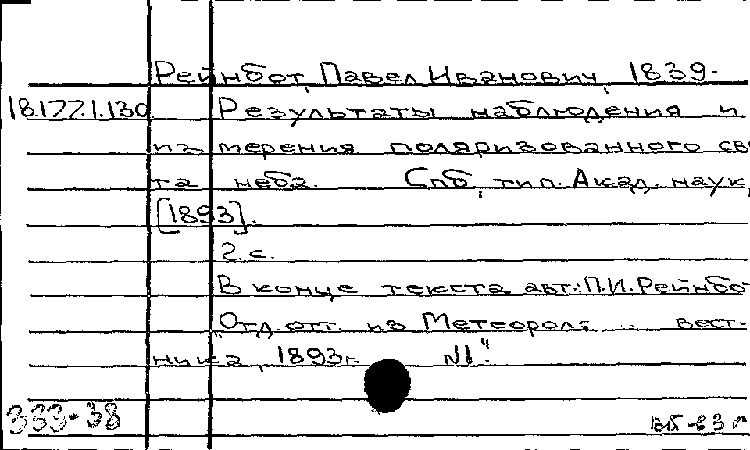 Рейнбот, Павел Иванович, 1839-
18.177.1.130 Результаты наблюдения и
измерения поляризованного све
та неба. Спб, тип. Акад. наук,
[1893].
2 с.
В конце текста авт.: П.И. Рейнбо
"Отд. отт. из Метеорол. вест-
ника, 1893 г. №1."
333-38